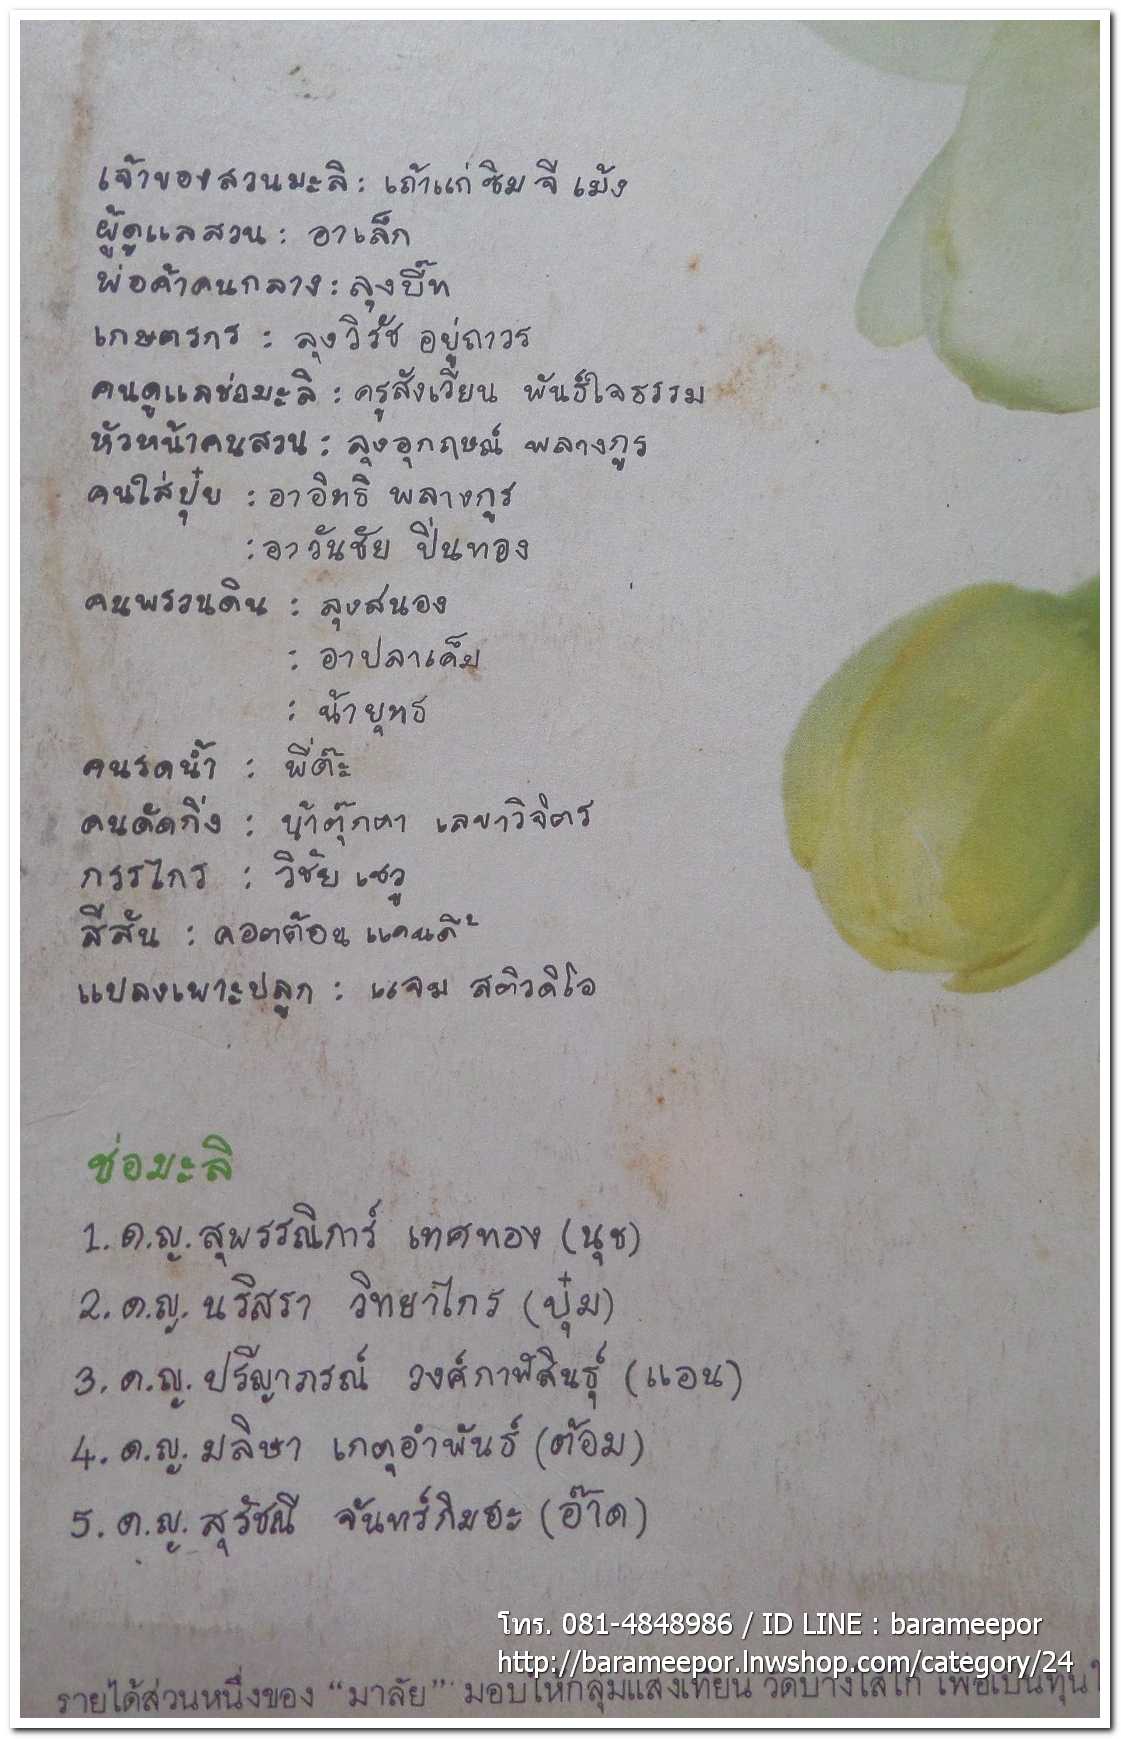 เจ้าของสวนมะลิ : เถ้าแก่ ซิม จี เม้ง
ผู้ดูแลสวน : อาเล็ก
พ่อค้าคนกลาง : ลุงบี๊ท
เกษตรกร : ลุงวิรัช อยู่ถาวร
คนดูแลช่อมะลิ : ครูสังเวียน พันธ์ใจธรรม
หัวหน้าคนสวน : ลุงอุกฤษณ์ พลางกูร
คนใส่ปุ๋ย : อาอิทธิ พลางกูร
: อาวันชัย ปิ่นทอง
คนพรวนดิน : ลุงสนอง
: อาปลาเค็ม
: น้ายุทธ
คนรดน้ำ : พี่ต๊ะ
คนตัดกิ่ง : น้าตุ๊กตา เลขาวิจิตร
กรรไกร : วิชัย เชวู
สีสัน : คอตต้อน แคนดี้
แปลงเพาะปลูก : แจม สติวดิโอ
ช่อมะลิ
1. ด.ญ. สุพรรณิการ์ เทศทอง (นุช)
2. ด.ญ. นริสรา วิทยาไกร (ปุ๋ม)
3. ด.ญ. ปรีญาภรณ์ วงศ์กาฬสินธุ์ (แอน)
4. ด.ญ. มลิษา เกตุอำพันธ์ (ต้อม)
5. ด.ญ. สุรัชณี จันทร์ภิมฮะ (อ๊าด)
โทร. 081-4848986 / ID LINE : barameepor
http://barameepor.lnwshop.com/category/24
รายได้ส่วนหนึ่งของ "มาลัย" มอบให้กลุ่มแสงเทียน วัดบางไส้ไก่ เพื่อเป็นทุน